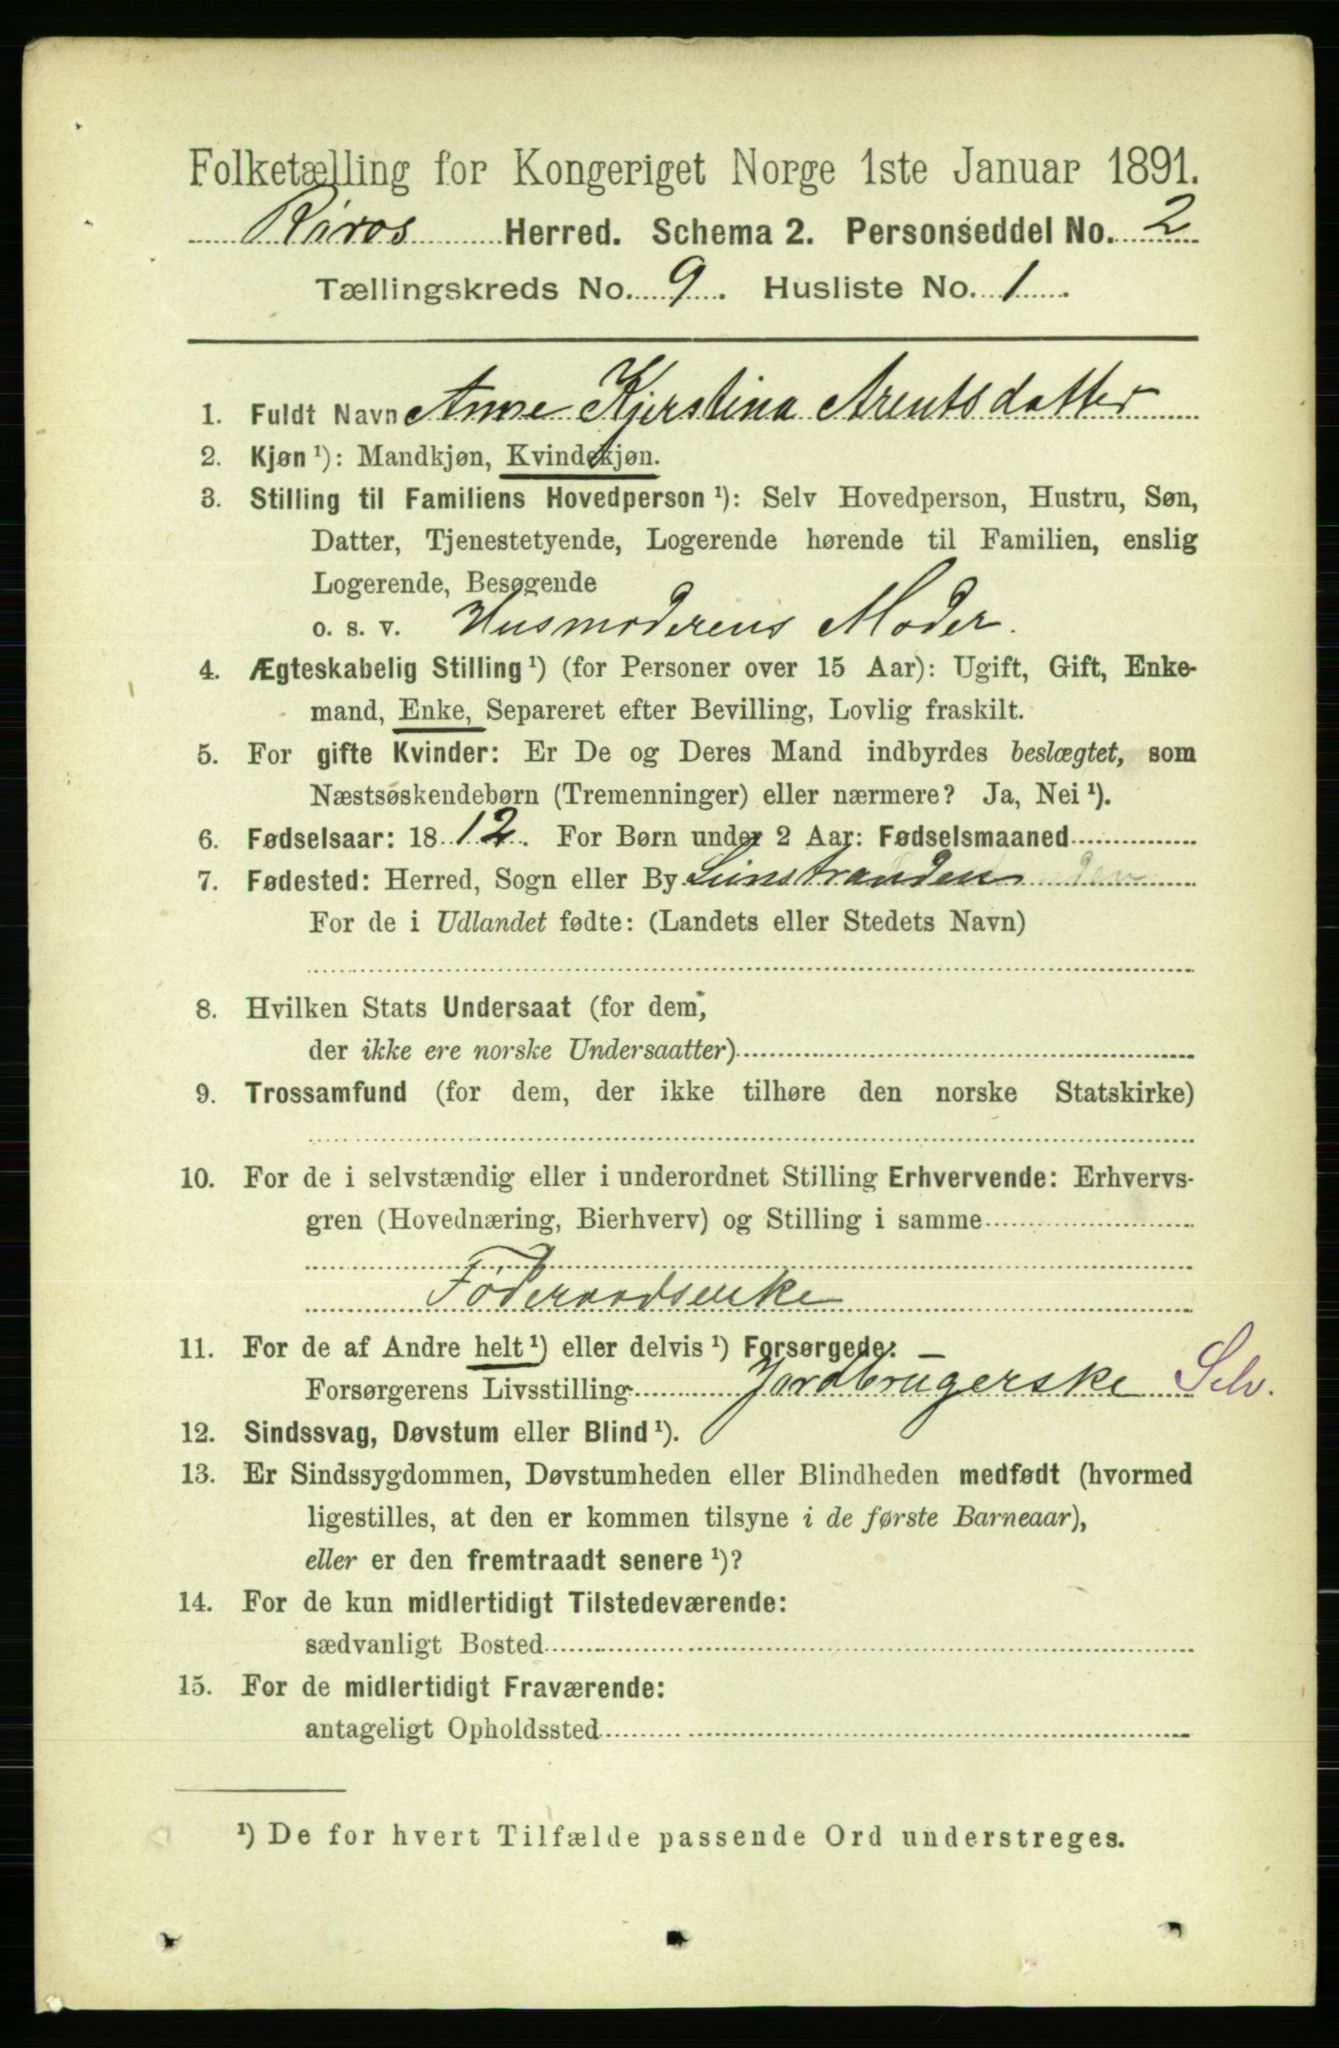 Folketælling for Kongeriget Norge 1ste Januar 1891.
Røros Herred. Schema 2. Personseddel No. 2
Tællingskreds No. 9. Husliste No. 1.
1. Fuldt Navn Anne Kjerstina Arentsdatter
2. Kjøn ¹): Mandkjøn, Kvindekjøn.
3. Stilling til Familiens Hovedperson ¹): Selv Hovedperson, Hustru, Søn,
Datter, Tjenestetyende, Logerende hørende til Familien, enslig
Logerende, Besøgende
o. s. v. Husmoderens Moder.
4. Ægteskabelig Stilling ¹) (for Personer over 15 Aar): Ugift, Gift, Enke-
mand, Enke, Separeret efter Bevilling, Lovlig fraskilt.
5. For gifte Kvinder: Er De og Deres Mand indbyrdes beslægtet, som
Næstsøskendebørn (Tremenninger) eller nærmere? Ja, Nei ¹).
6. Fødselsaar: 18 12. For Børn under 2 Aar: Fødselsmaaned
7. Fødested: Herred, Sogn eller By
For de i Udlandet fødte: (Landets eller Stedets Navn)
8. Hvilken Stats Undersaat (for dem,
der ikke ere norske Undersaatter)
9. Trossamfund (for dem, der ikke tilhøre den norske Statskirke)
10. For de i selvstændig eller i underordnet Stilling Erhvervende: Erhvervs-
gren (Hovednæring, Bierhverv) og Stilling i samme
Føderaadsenke
11. For de af Andre helt ¹) eller delvis ¹) Forsørgede:
Forsørgerens Livsstilling Jordbrugerske Selv.
12. Sindssvag, Døvstum eller Blind ¹).
13. Er Sindssygdommen, Døvstumheden eller Blindheden medfødt (hvormed
ligestilles, at den er kommen tilsyne i de første Barneaar),
eller er den fremtraadt senere ¹)?
14. For de kun midlertidigt Tilstedeværende:
sædvanligt Bosted
15. For de midlertidigt Fraværende:
antageligt Opholdssted
¹) De for hvert Tilfælde passende Ord understreges.